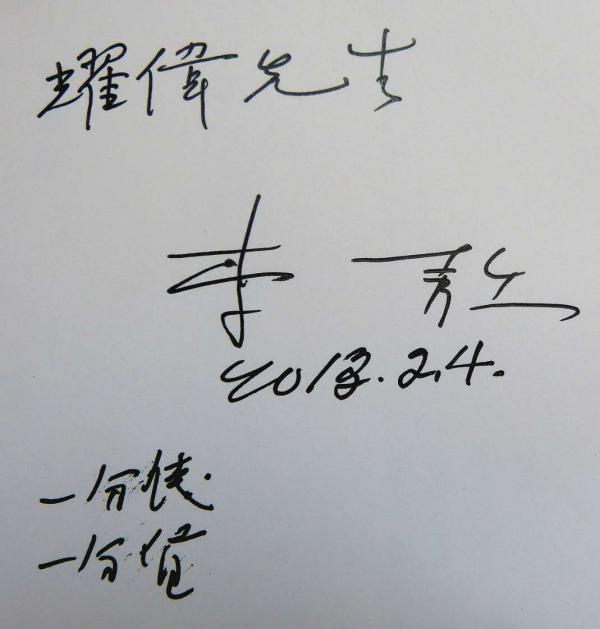 耀偉先生
李敖
2013.2.4.
一分
一分